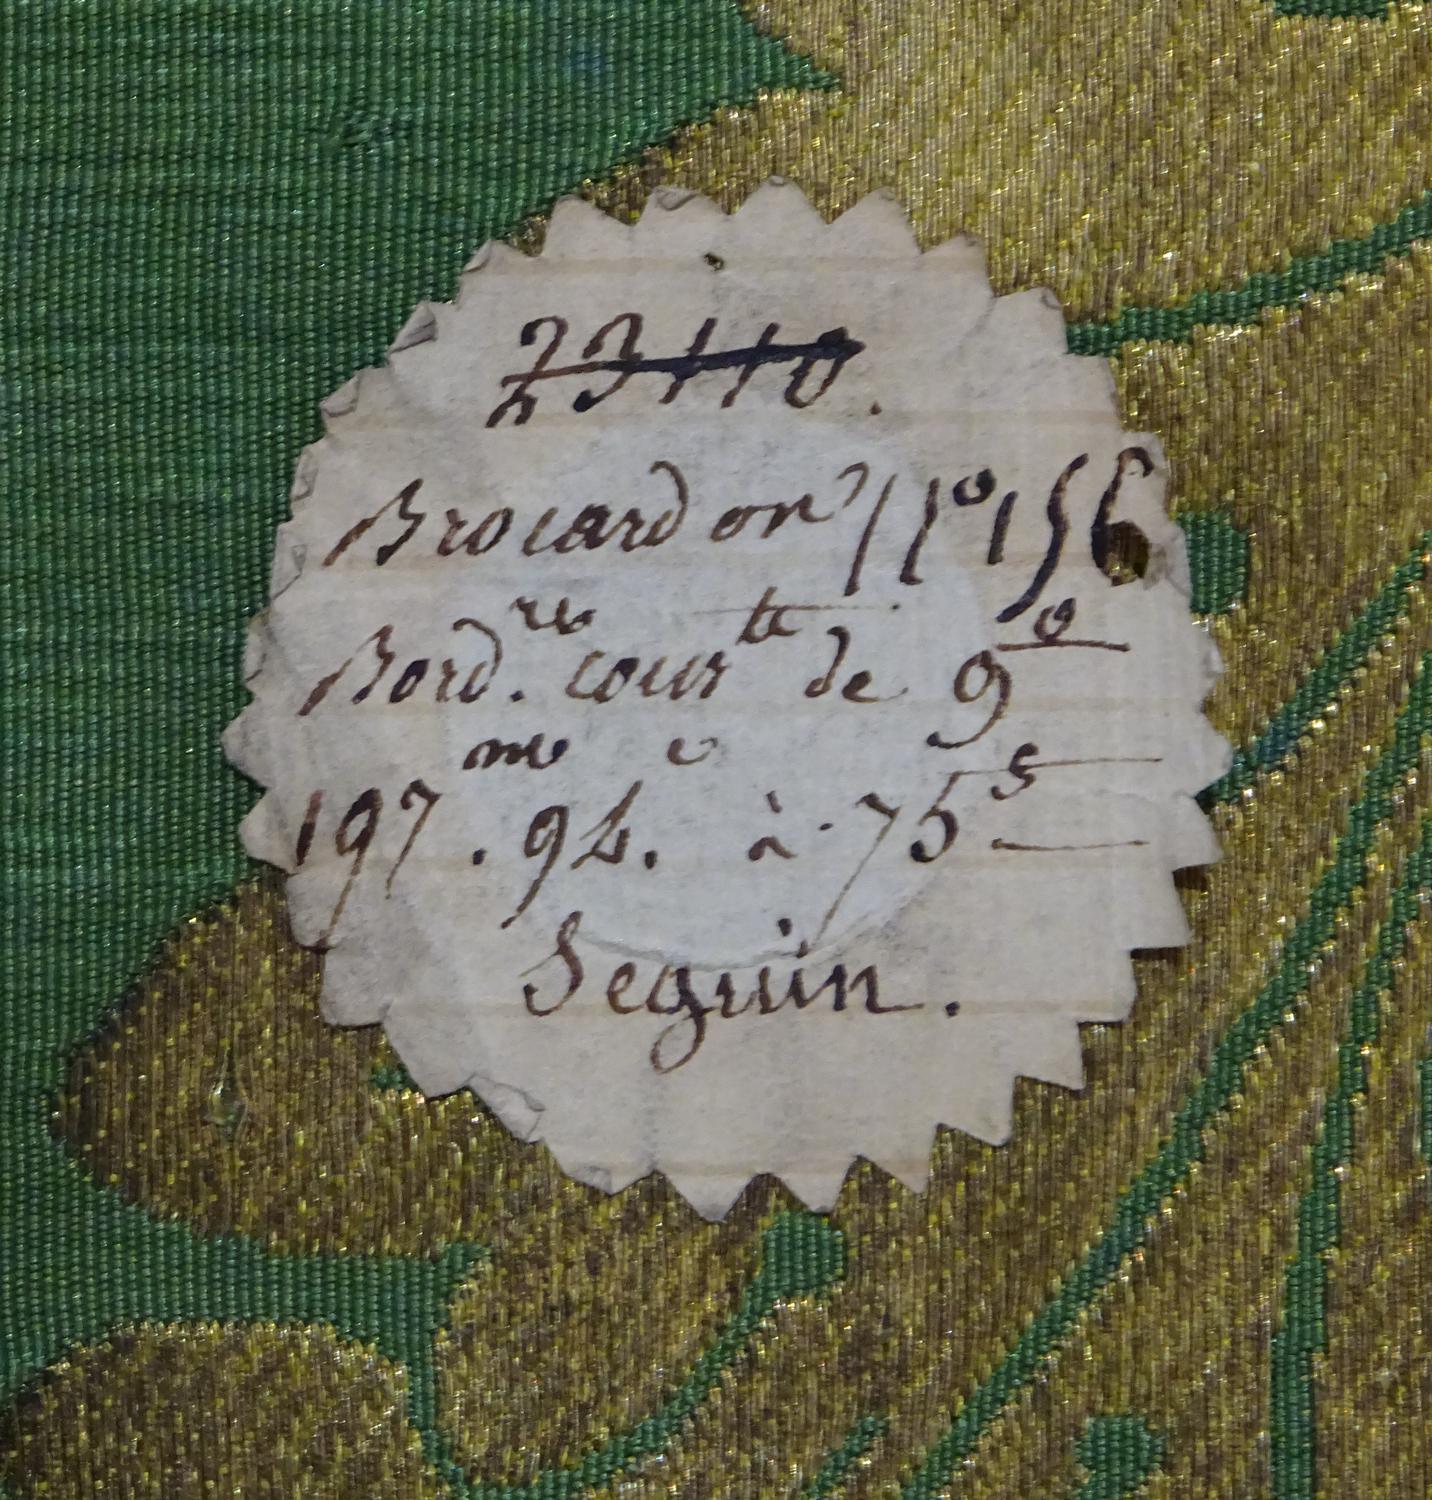 23110.
Brocard or N° 156
Bord.re cour.te de 9°
197.me 94.c à 75 s
Seguin.